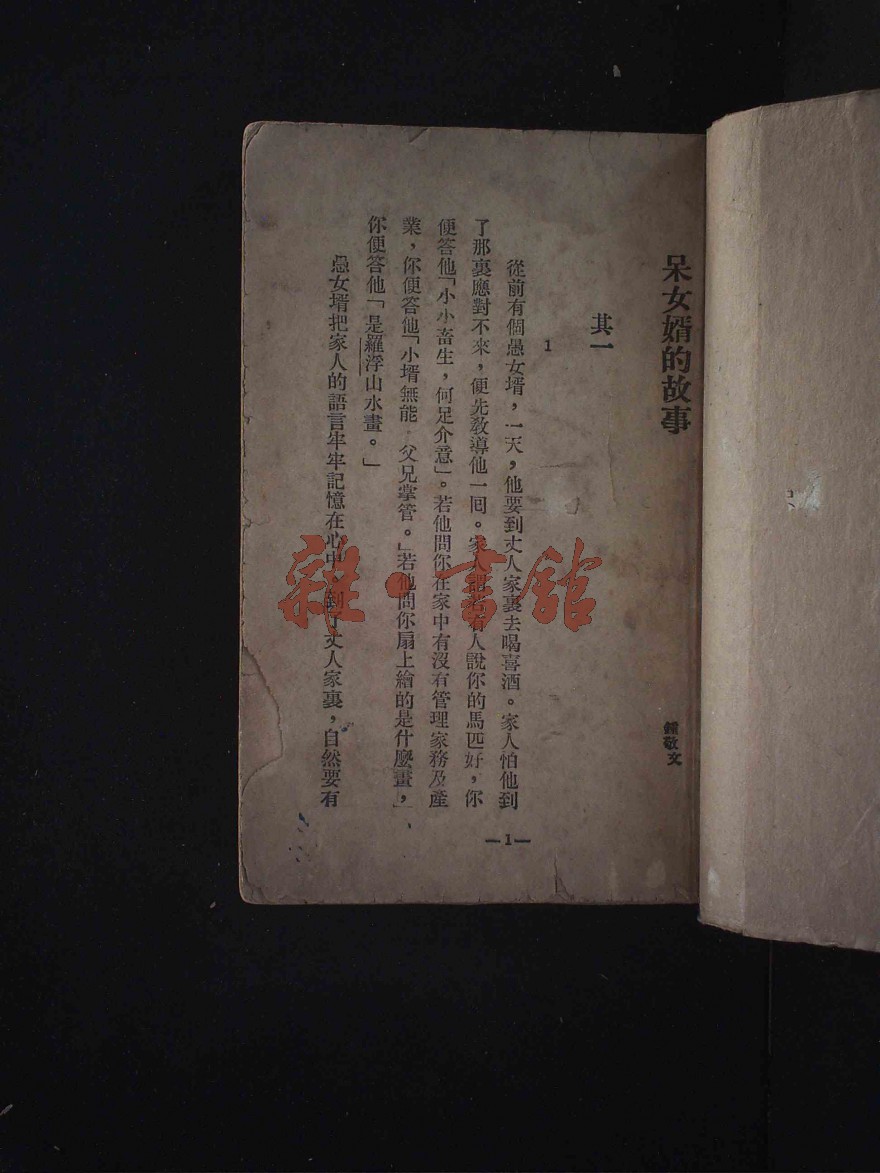 呆女婿的故事
鍾敬文
其一
1
從前有個愚女壻，一天，他要到丈人家裏去喝喜酒。家人怕他到
了那裏應對不來，便先教導他一囘。家人謂若有人說你的馬匹好，你
便答他「小小畜生，何足介意」。若他問你在家中有沒有管理家務及產
業，你便答他「小壻無能，父兄掌管。」若他問你扇上繪的是什麼畫，
你便答他「是羅浮山水畫。」
愚女壻把家人的語言牢牢記憶在心中，到了丈人家裏，自然要有
—1—
雜·書館